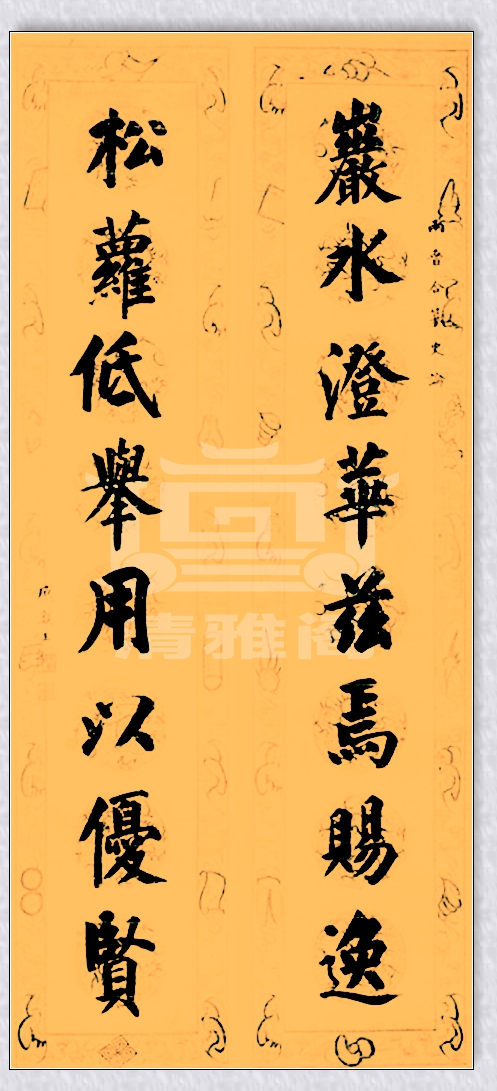 巖水澄華茲焉賜逸
松蘿低舉用以優賢
清雅阁